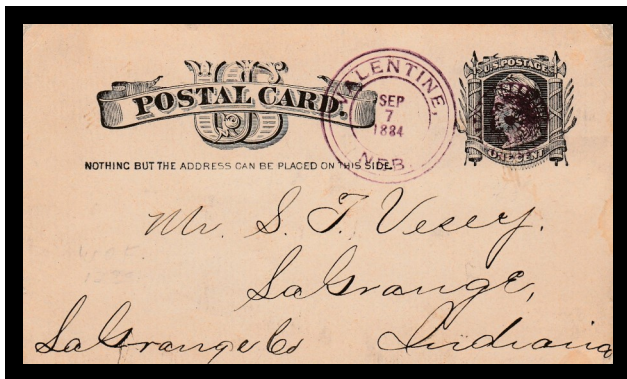 US
POSTAL CARD.
NOTHING BUT THE ADDRESS CAN BE PLACED ON THIS SIDE.
VALENTINE,
SEP
7
1884
NEB.
U.S. POSTAGE
ONE CENT
Mr. S. T. Vesey.
LaGrange,
LaGrange Co Indiana